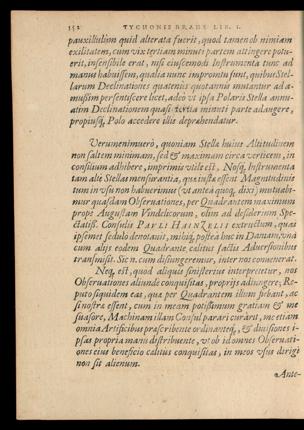 352 TYCHONIS BRAHE LIB. I.
pauxillulum quid alterata fuerit, quod tamen ob nimiam
exilitatem, cum vix tertiam minuti partem attingere potu-
erit, insensibile erat, nisi eiuscemodi Instrumenta tunc ad
manus habuissem, qualia nunc in promtu sunt, quibus Stel-
larum Declinationes quatenus quotannis mutantur ad a-
mussim persentiscere licet, adeo vt ipsa Polaris Stella annu-
atim Declinationem quasi tertia minuti parte adaugere,
propiusq; Polo accedere illic deprehendatur.
Verumenimuerò, quoniam Stellæ huius Altitudinem
non saltem minimam, sed & maximam circa verticem, in
consilium adhibere, imprimis vtile est, Nosq; Instrumenta
tam altæ Stellæ mensurantia, quæ iustæ essent Magnitudinis
tum in vsu non habuerimus (vt antea quoq; dixi) mutuabi-
mur quasdam Observationes, per Quadrantem maximum
prope Augustam Vindelicorum, olim ad desiderium Spe-
ctatiss. Consulis PAVLI HAINZELII extructum, quas
ipsemet sedulo denotauit, mihiq; postea huc in Daniam, vnà
cum aliis eodem Quadrante cælitus factis Adversionibus
transmisit. Sic n. cum disiungeremur, inter nos convenerat.
Neq; est, quod aliquis sinisterius interpretetur, nos
Observationes aliunde conquisitas, propriis adiungere; Re-
puto siquidem eas, quæ per Quadrantem illum fiebant, ac
si nostræ essent, cum in meam potissimum gratiam & me
suasore, Machinam illam Consul parari curârit, me etiam
omnia Artificibus præscribente ordinanteq;, & divisiones i-
psas propria manu distribuente, vt ob id omnes Observati-
ones eius beneficio cælitus conquisitas, in meos vsus dirigi
non sit alienum.
Ante-